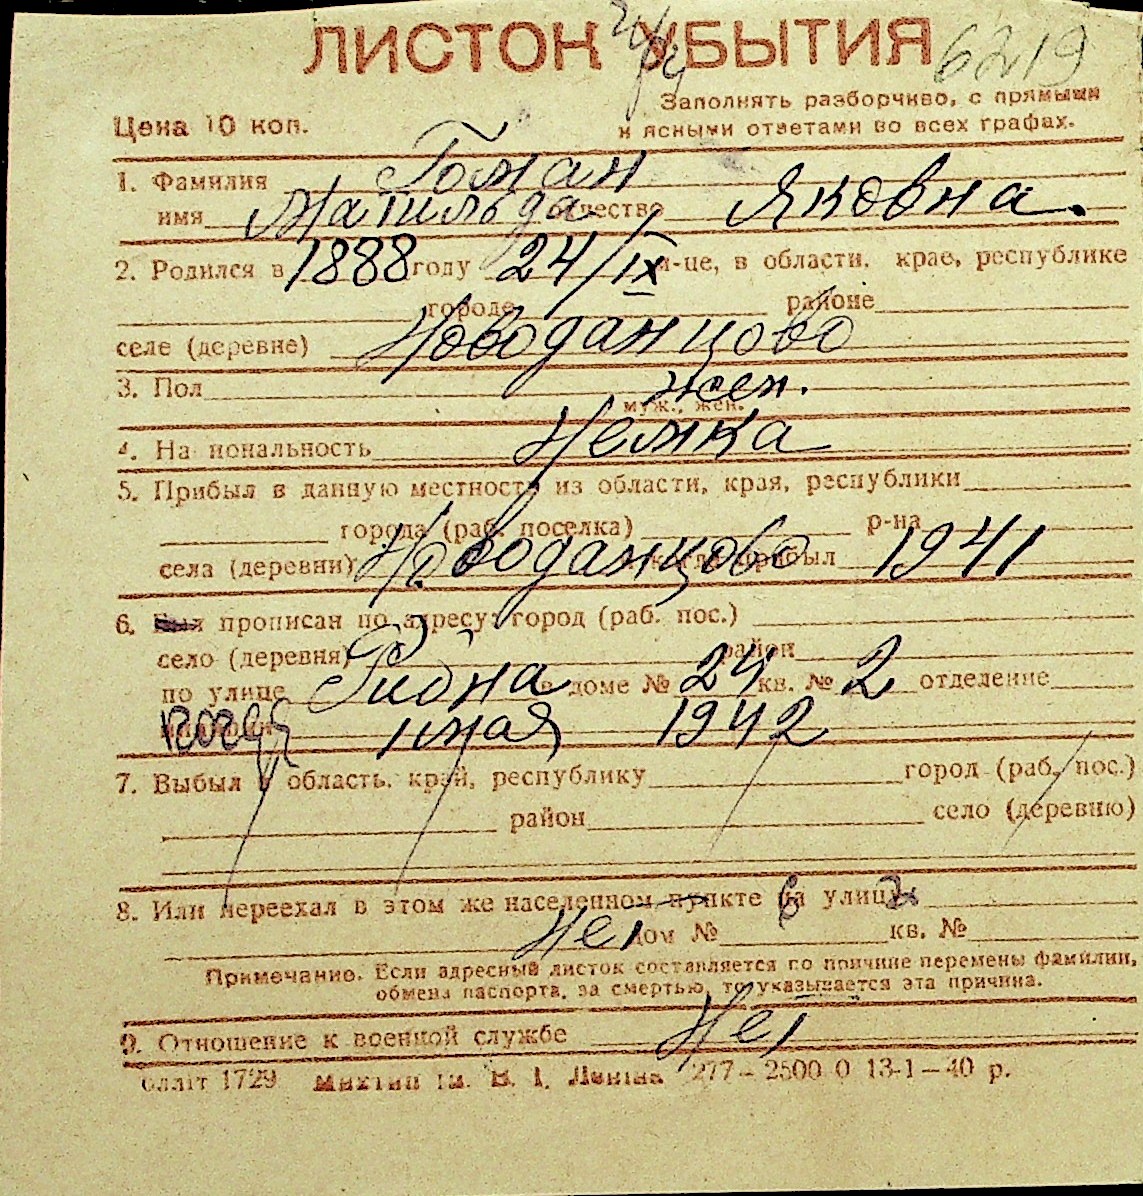 ЛИСТОК УБЫТИЯ 6219
Заполнять разборчиво, с прямыми
Цена 10 коп. и ясными ответами во всех графах.
1. Фамилия Гоман
имя Матильда отчество Яковна.
2. Родился в 1888 году 24/IX м-це, в области, крае, республике
городе районе
селе (деревне) Новоданцово
3. Пол жен.
муж., жен.
4. Национальность Немка
5. Прибыл в данную местность из области, края, республики
города (раб. поселка) р-на
села (деревни) Новоданцово когда прибыл 1941
6. прописан по адресу: город (раб. пос.)
село (деревня) район
по улице Рибна в доме № 24 кв. № 2 отделение
когда 1 мая 1942
7. Выбыл в область, край, республику город (раб. пос.)
район село (деревню)
8. Или переехал в этом же населенном пункте на улицу
Нет дом № кв. №
Примечание. Если адресный листок составляется по причине перемены фамилии,
обмена паспорта, за смертью, то указывается эта причина.
9. Отношение к военной службе Нет
Обліт 1729 В. І. Леніна 277—2500 0 13-1—40 р.